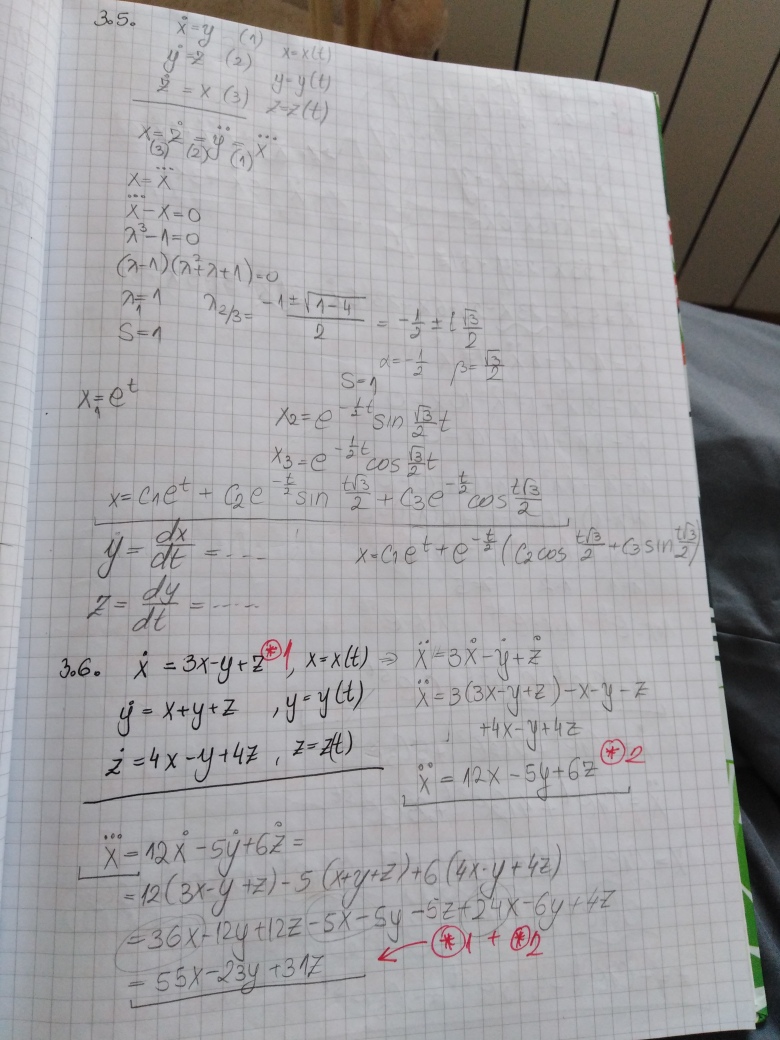 3.5. ẋ = y (1) x = x(t)
ẏ = z (2) y = y(t)
ż = x (3) z = z(t)
x = ż = ÿ = x⃛
(3) (2) (1)
x = x⃛
x⃛ - x = 0
λ³ - 1 = 0
(λ-1)(λ²+λ+1) = 0
λ₁ = 1 λ₂/₃ = (-1 ± √(1-4))/2 = -1/2 ± i √3/2
S=1
α = -1/2 β = √3/2
S=1
x₁ = e^t
x₂ = e^(-1/2 t) sin √3/2 t
x₃ = e^(-1/2 t) cos √3/2 t
x = C₁e^t + C₂e^(-t/2) sin t√3/2 + C₃e^(-t/2) cos t√3/2
y = dx/dt = ....
x = C₁e^t + e^(-t/2) (C₂ cos t√3/2 + C₃ sin t√3/2)
z = dy/dt = .....
3.6. ẋ = 3x-y+z *1, x = x(t) ⇒ ẍ = 3ẋ - ẏ + ż
ẏ = x+y+z , y = y(t)
ẍ = 3(3x-y+z) - x-y-z
+4x-y+4z
ż = 4x-y+4z , z = z(t)
ẍ = 12x - 5y + 6z *2
x⃛ = 12ẋ - 5ẏ + 6ż =
= 12(3x-y+z) - 5(x+y+z) + 6(4x-y+4z)
= 36x-12y+12z-5x-5y-5z+24x-6y+4z
= 55x-23y+31z
*1 + *2